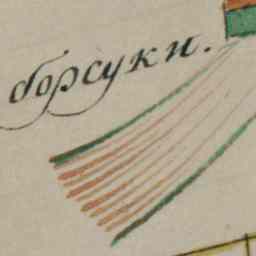 борсуки.